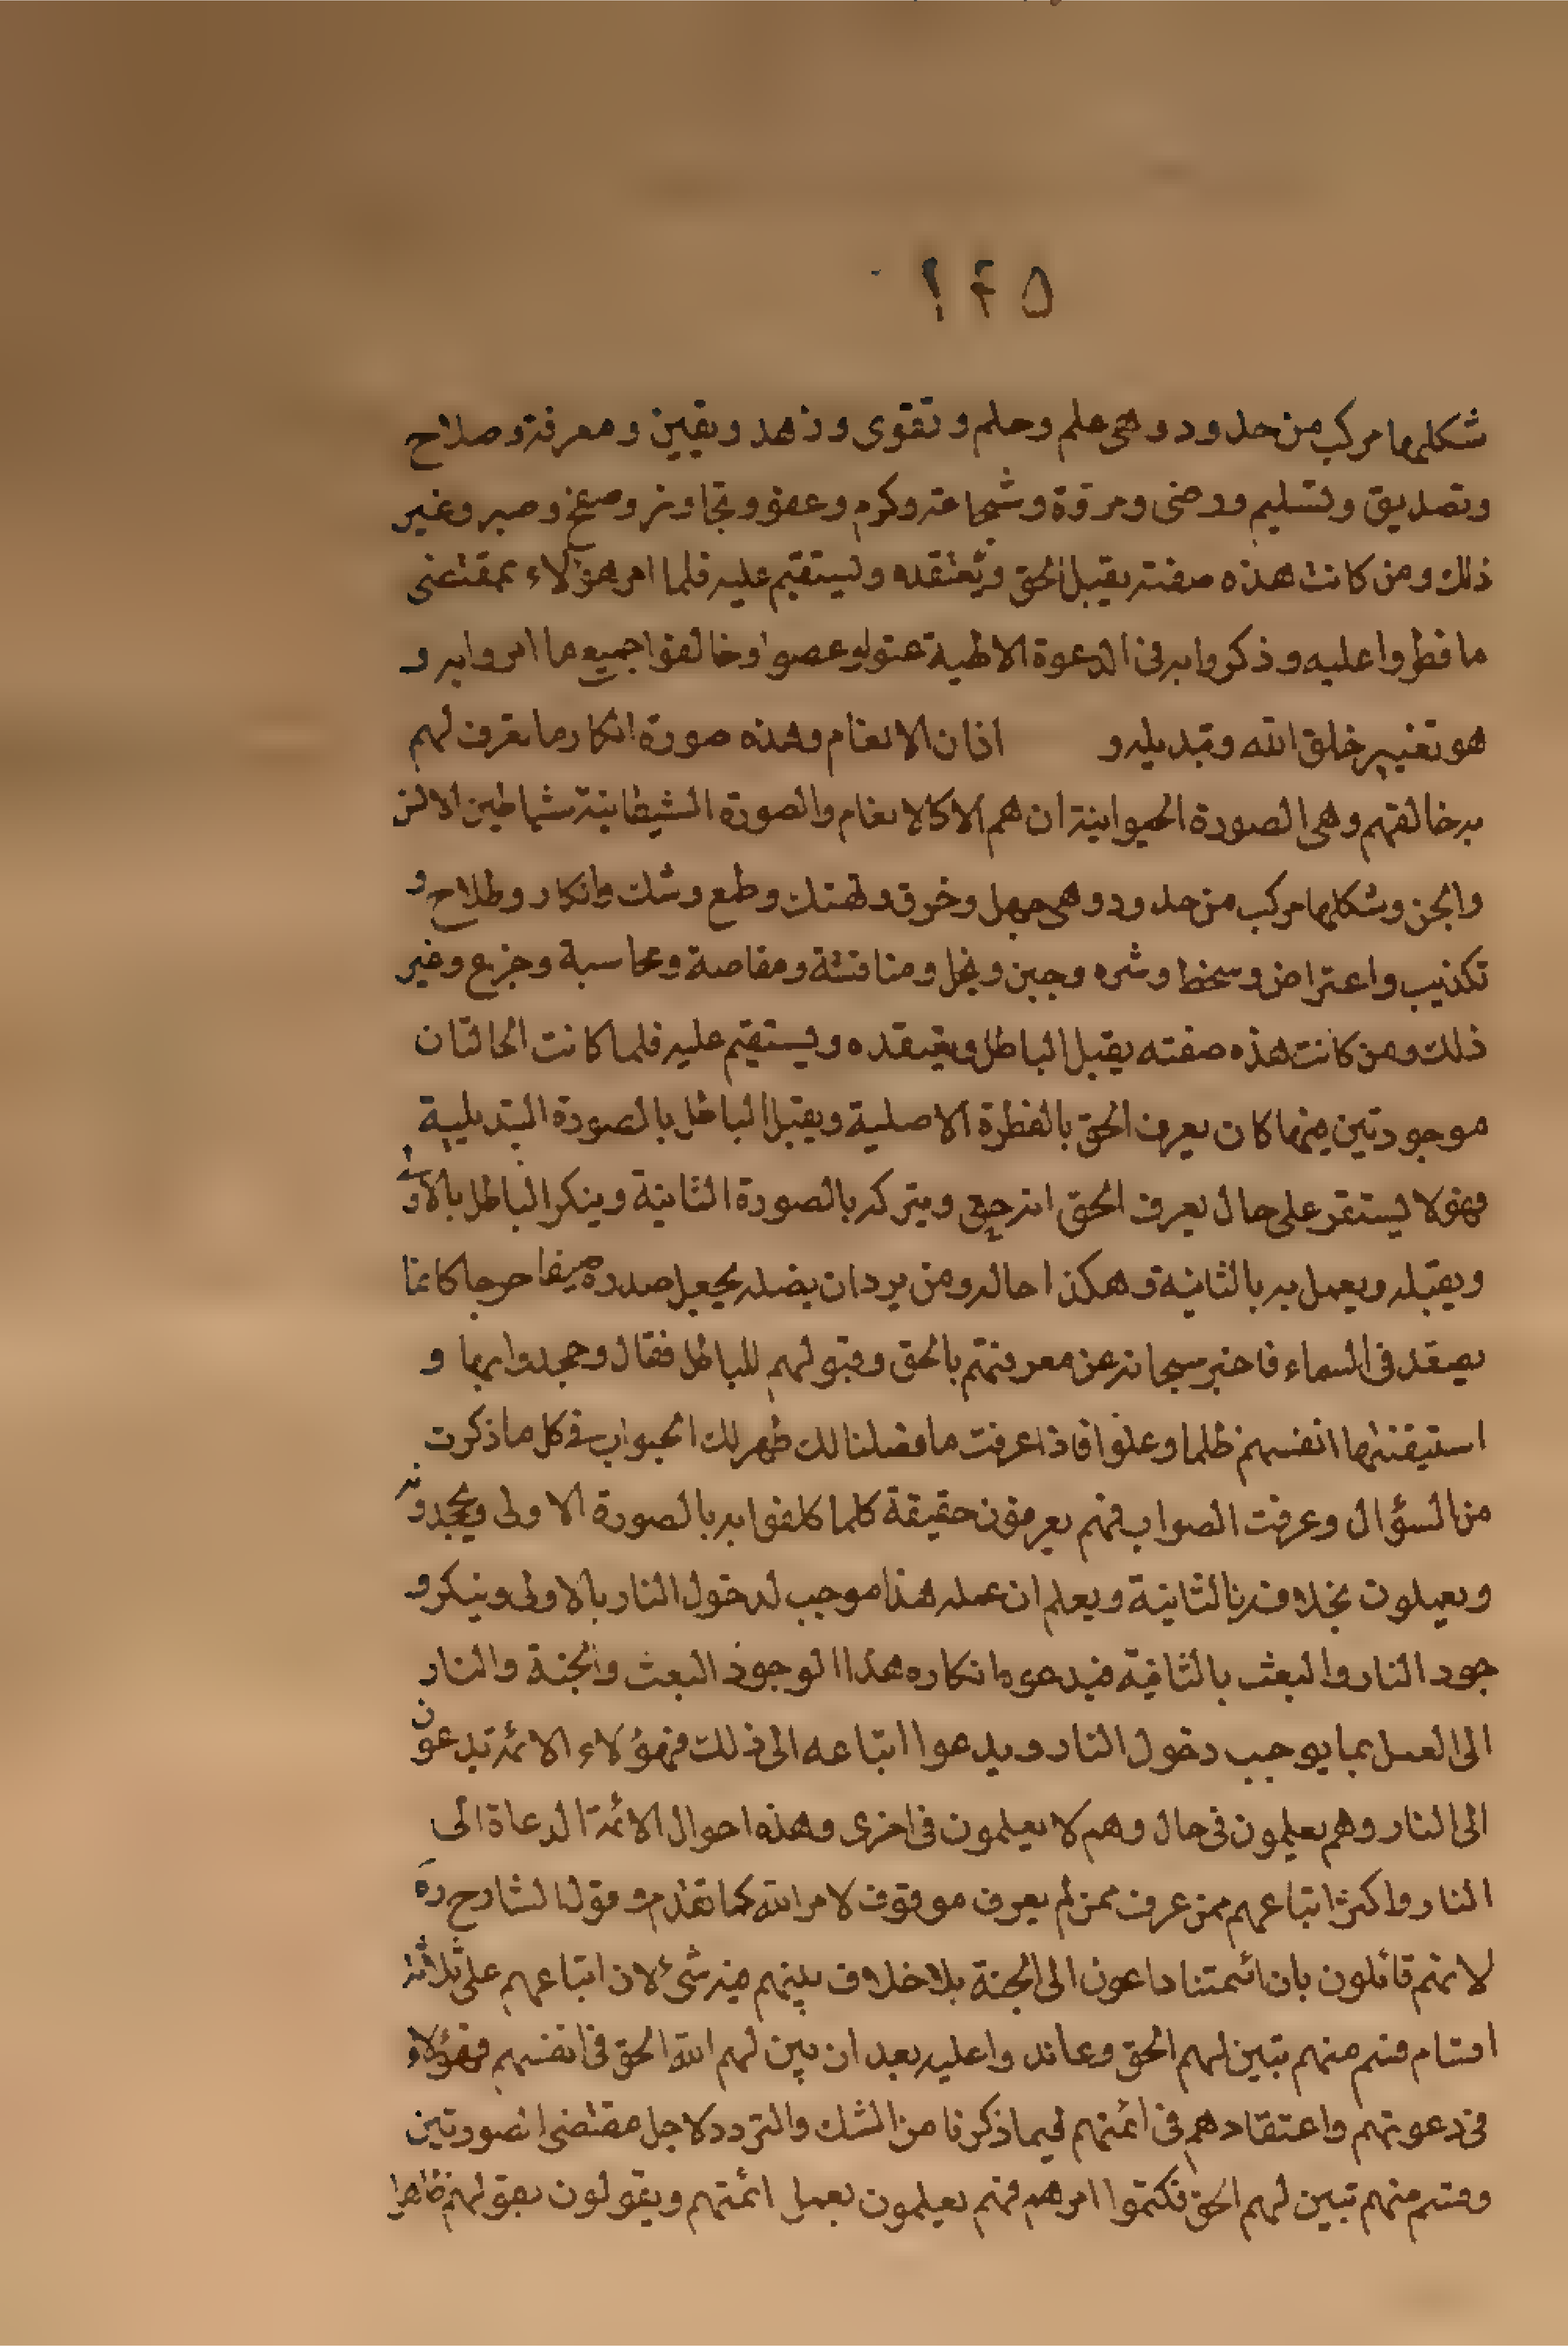 ١٤٥
شكلها مركب من حدود وهي علم وحلم وتقوى وزهد ويقين ومعرفة وصلاح
وتصديق وتسليم ورضى ومروة وشجاعة وكرم وعفو وتجاوز وصفح وصبر وغير
ذلك ومن كانت هذه صفته يقبل الحق ويعتقده ويستقيم عليه فلما امر هؤلاء بمقتضى
ما فطروا عليه وذكروا به في الدعوة الالهية عتوا وعصوا وخالفوا جميع ما امروا به و
هو تغيير خلق الله وتبديله و اذان الانعام وهذه صورة انكار ما تعرف لهم
به خالقهم وهي الصورة الحيوانية ان هم الا كالانعام والصورة الشيطانية شياطين الانس
والجن وشكلها مركب من حدود وهي جهل وخرق وتهتك وطمع وشك وانكار وطلاح و
تكذيب واعتراض وسخط وشره وجبن وبخل ومناقشة ومقاصة ومحاسبة وجزع وغير
ذلك ومن كانت هذه صفته يقبل الباطل ويعتقده ويستقيم عليه فلما كانت الحالتان
موجودتين فيهما كان يعرف الحق بالفطرة الاصلية ويقبل الباطل بالصورة التبديلية
فهو لا يستقر على حال يعرف الحق انه حق ويتركه بالصورة الثانية وينكر الباطل بالاولى
ويقبله ويعمل به بالثانية وهكذا حاله ومن يرد ان يضله يجعل صدره ضيقا حرجا كانما
يصعد في السماء فاخبر سبحانه عن معرفتهم بالحق وقبولهم للباطل فقال وجحدوا بها و
استيقنتها انفسهم ظلما وعلوا فاذا عرفت ما فصلنا لك ظهر لك الجواب في كل ما ذكرت
من السؤال وعرفت الصواب فهم يعرفون حقيقة كلما كلفوا به بالصورة الاولى ويجحدونه
ويعملون بخلافه بالثانية ويعلم ان عمله هذا موجب لدخول النار بالاولى وينكر و
جود النار والبعث بالثانية فيدعوه انكاره هذا الوجود البعث والجنة والنار
الى العمل بما يوجب دخول النار ويدعوا اتباعه الى ذلك فهؤلاء الائمة يدعون
الى النار وهم يعلمون في حال وهم لا يعلمون في اخرى وهذه احوال الائمة الدعاة الى
النار واكثر اتباعهم ممن عرف ممن لم يعرف موقوف لامر الله كما تقدم وقول الشارح ره
لانهم قائلون بان ائمتنا داعون الى الجنة بلا خلاف بينهم فيه شيء لان اتباعهم على ثلاثة
اقسام قسم منهم تبين لهم الحق وعاندوا عليه بعد ان بين لهم الله الحق في انفسهم فهؤلاء
في دعوتهم واعتقادهم في ائمتهم فيما ذكرنا من الشك والتردد لاجل مقتضى الصورتين
وقسم منهم تبين لهم الحق فكتموا امرهم فهم يعلمون بعمل ائمتهم ويقولون بقولهم ظاهرا